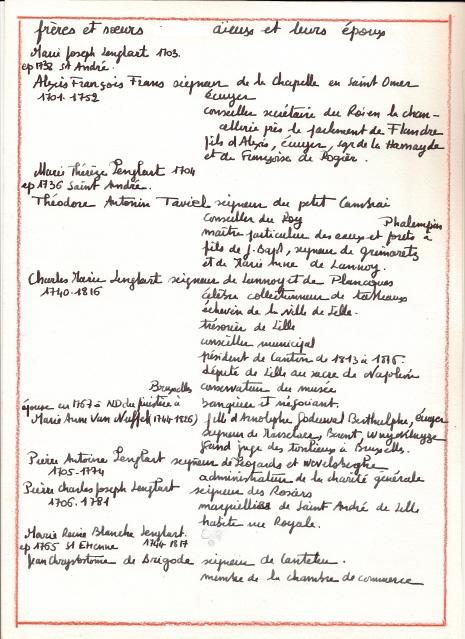 frères et sœurs aïeux et leurs époux
Marie Joseph Lenglart 1703.
ep 1732 St André.
Alexis François Frans seigneur de la Chapelle en Saint Omer
1701.1752 écuyer
conseiller secrétaire du Roi en la chan-
cellerie près le parlement de Flandre
fils d'Alexis, écuyer, sgr de la Hamayde
et de Françoise de Rogier.
Marie Thérèse Lenglart 1704
ep 1736 Saint André.
Théodore Antonin Taviel seigneur du petit Cambrai
conseiller du Roy Phalempin
maître particulier des eaux et forêts à
fils de J. Bapt, seigneur de Grimaretz
et de Marie Anne de Lannoy.
Charles Marie Lenglart seigneur de Lannoy et de Plancques
1740.1816 célèbre collectionneur de tableaux
échevin de la ville de Lille.
trésorier de Lille
conseiller municipal
président de Canton de 1813 à 1816.
député de Lille au sacre de Napoléon
Bruxelles conservateur du musée
épouse en 1767 à ND du finistère à banquier et négociant.
Marie Anne Van Nuffel (1744-1826) fille d'Arnolphe Berthulphe, écuyer
seigneur de
grand juge des tonlieux à Bruxelles.
Pierre Antoine Lenglart seigneur de et
1705-1774 administrateur de la charité générale
Pierre Charles Joseph Lenglart seigneur des Rosars
1706.1781 marguillier de Saint André de Lille
habite rue Royale.
Marie Reine Blanche Lenglart.
ep 1765 St Etienne 1744 1817
Jean Chrysostome de Brigode seigneur de Canteleu.
membre de la chambre de commerce